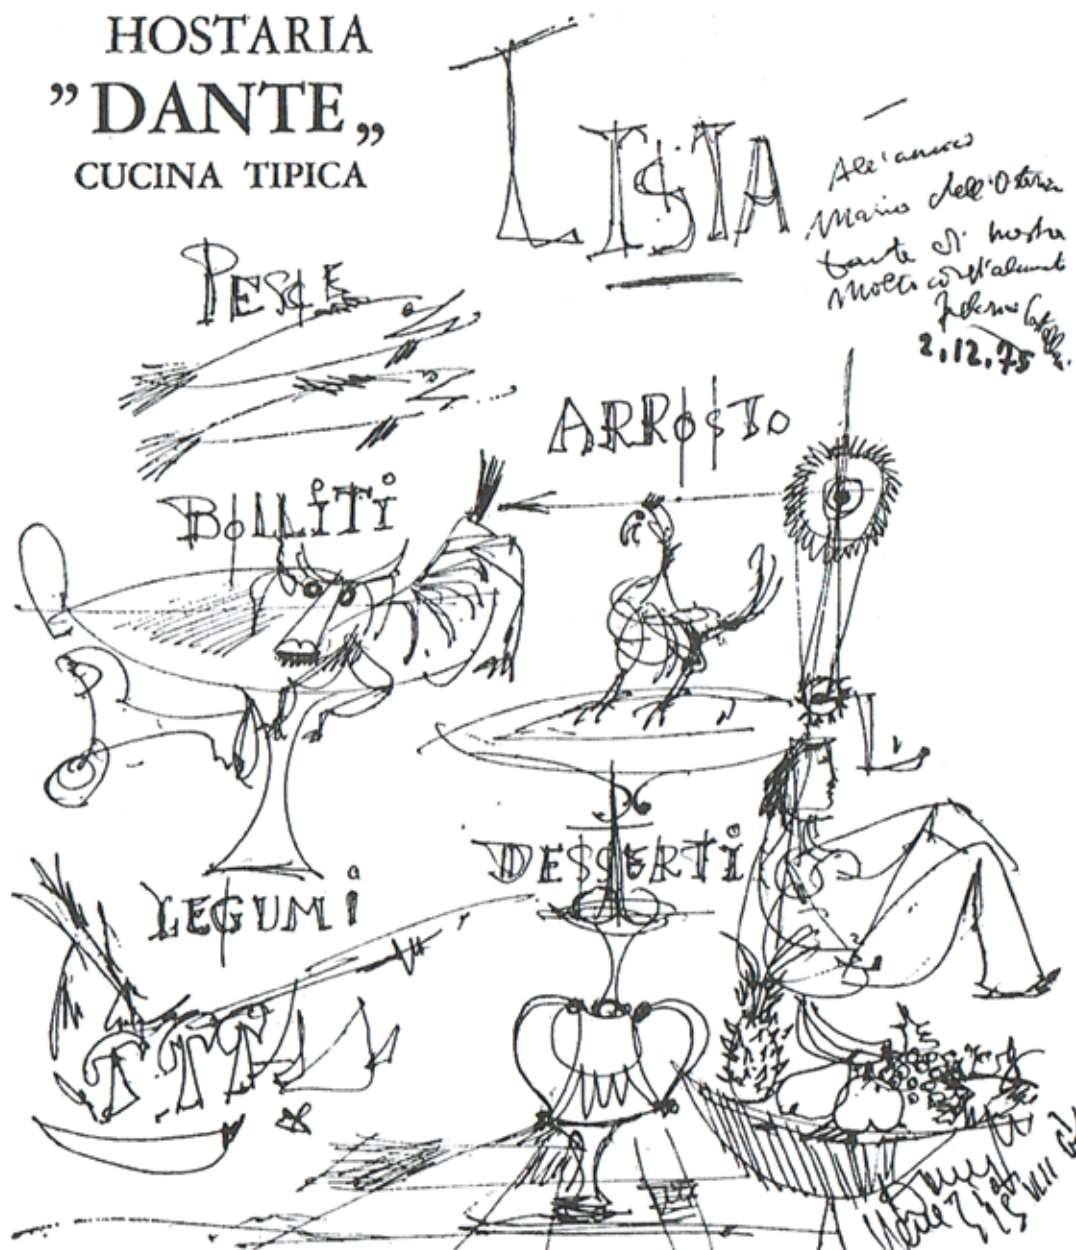 HOSTARIA
"DANTE„
CUCINA TIPICA
LISTA
All'amico
Mario dell'Osteria
Molto cordialmente
2.12.75
PESCE
ARROSTO
BOLLITI
DESSERTI
LEGUMI